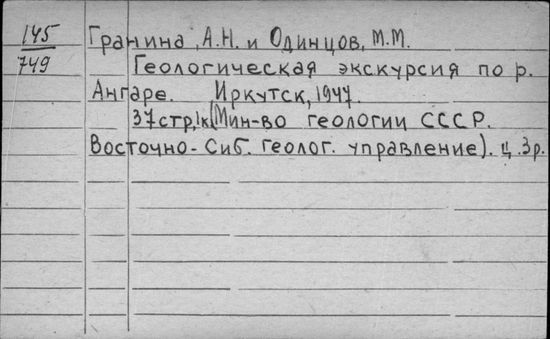 145
749
Гранина, А.Н. и Одинцов, М.М.
Геологическая экскурсия по р.
Ангаре. Иркутск, 1947.
37 стр, 1к (Мин-во геологии СССР.
Восточно-Сиб. геолог. управление). ц. 3р.